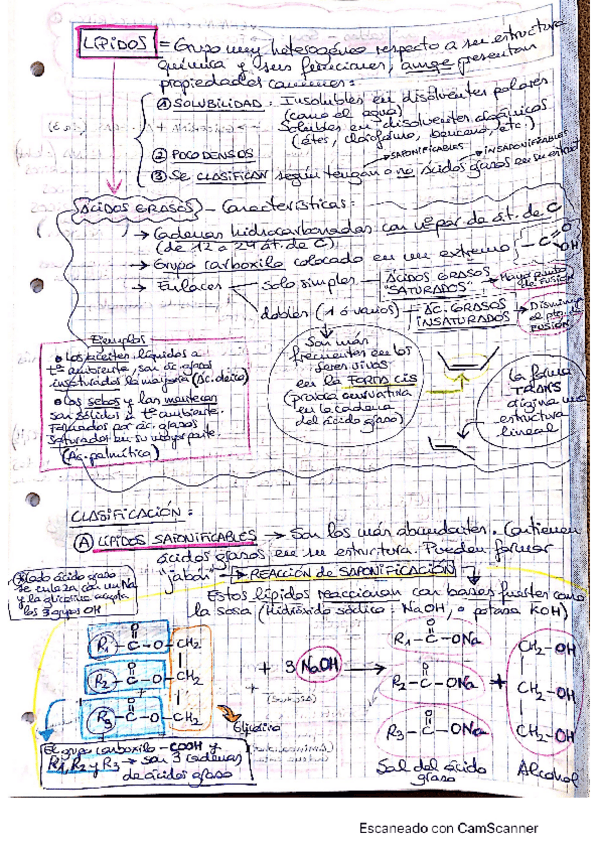 LÍPIDOS = Grupo muy heterogéneo respecto a su estructura
química y sus funciones, aunque presentan
propiedades comunes:
① SOLUBILIDAD. Insolubles en disolventes polares
(como el agua)
Solubles en disolventes orgánicos
(éter, cloroformo, benceno, etc.)
② POCO DENSOS
SAPONIFICABLES
INSAPONIFICABLES
③ Se CLASIFICAN según tengan o no ácidos grasos en su
ÁCIDOS GRASOS - Características:
→ Cadenas hidrocarbonadas con nº par de át. de C
(de 12 a 24 át. de C)
→ Grupo carboxilo colocado en un extremo
-C
O
OH
→ Enlaces
solo simples → ÁCIDOS GRASOS
"SATURADOS"
→ Mayor punto
de fusión
dobles (1 ó varios) → ÁC. GRASOS
INSATURADOS
→ Disminuye
el pto. de
FUSIÓN
Ejemplos
• Los aceites, líquidos a
tª ambiente, son ác. grasos
insaturados la mayoría (Ác. oleico)
• Los sebos y las mantecas
son sólidos a tª ambiente.
Formados por ác. grasos
saturados en su mayor parte.
(Ac. palmítico)
Son más
frecuentes en los
seres vivos
en la FORMA cis
(provoca curvatura
en la cadena
del ácido graso)
La forma
TRANS
origina una
estructura
lineal
CLASIFICACIÓN:
Ⓐ LÍPIDOS SAPONIFICABLES → Son los más abundantes. Contienen
ácidos grasos en su estructura. Pueden formar
jabón → REACCIÓN de SAPONIFICACIÓN
Cada ácido graso
se enlaza con un Na
y la glicerina acepta
los 3 grupos OH
Estos lípidos reaccionan con bases fuertes como
la sosa (Hidróxido sódico: NaOH, o potasa KOH)
R1-C-O-CH2
O
R2-C-O-CH2
O
R3-C-O-CH2
O
+ 3 NaOH →
R1-C-ONa
O
R2-C-ONa
O
R3-C-ONa
O
+
CH2-OH
CH2-OH
CH2-OH
Glicerina
El grupo carboxilo -COOH y
R1, R2 y R3 → son 3 cadenas
de ácidos graso
Sal del ácido
graso
Alcohol
Escaneado con CamScanner